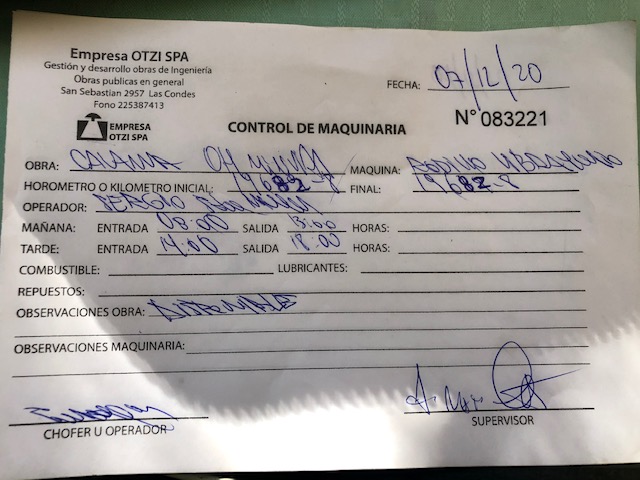 Empresa OTZI SPA
Gestión y desarrollo obras de Ingeniería
Obras publicas en general
San Sebastian 2957 Las Condes
Fono 225387413
FECHA: 07/12/20
EMPRESA
OTZI SPA
CONTROL DE MAQUINARIA
N° 083221
OBRA: CALAMA MAQUINA: RODILLO
HOROMETRO O KILOMETRO INICIAL: FINAL:
OPERADOR: SERGIO
MAÑANA: ENTRADA 08:00 SALIDA 13:00 HORAS:
TARDE: ENTRADA 14:00 SALIDA 18:00 HORAS:
COMBUSTIBLE: LUBRICANTES:
REPUESTOS:
OBSERVACIONES OBRA:
OBSERVACIONES MAQUINARIA:
CHOFER U OPERADOR
SUPERVISOR